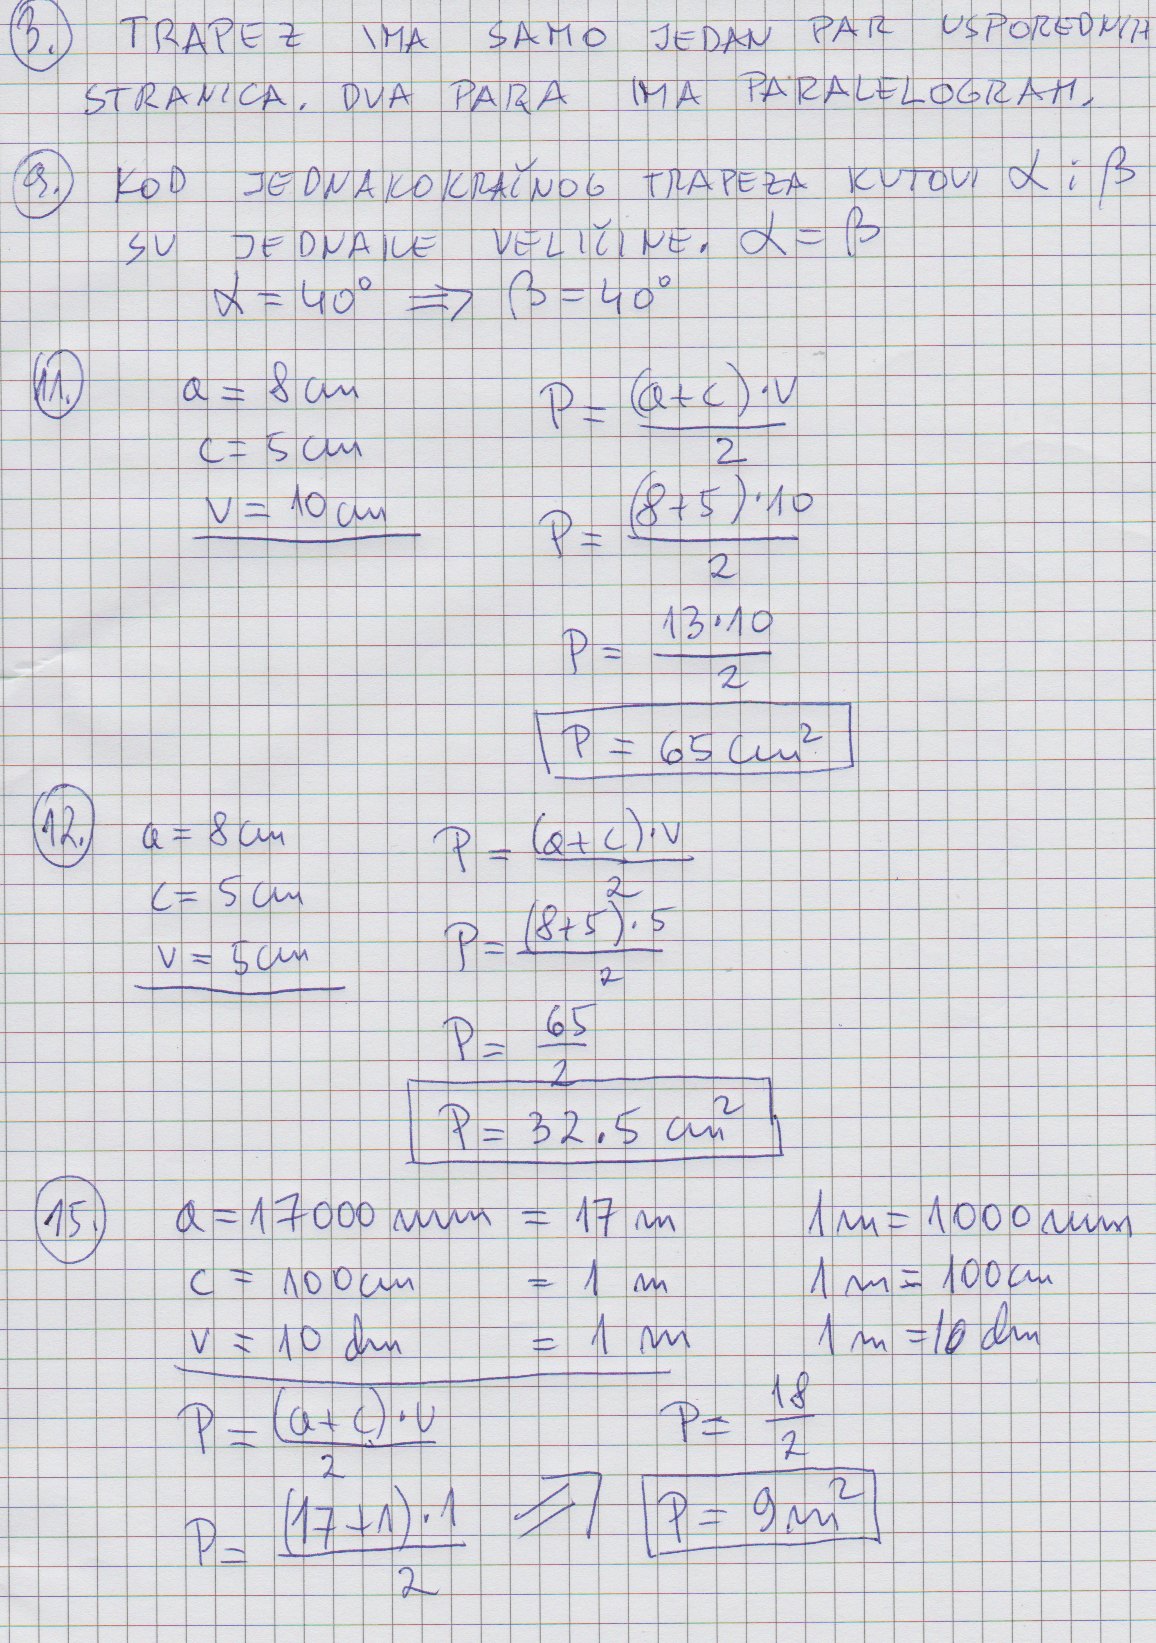 3. TRAPEZ IMA SAMO JEDAN PAR USPOREDNIH
STRANICA. DVA PARA IMA PARALELOGRAM.
9. KOD JEDNAKOKRAČNOG TRAPEZA KUTOVI α i β
SU JEDNAKE VELIČINE. α = β
α = 40° ⇒ β = 40°
11. a = 8 cm P = (a+c)·v / 2
c = 5 cm
v = 10 cm P = (8+5)·10 / 2
P = 13·10 / 2
P = 65 cm²
12. a = 8 cm P = (a+c)·v / 2
c = 5 cm P = (8+5)·5 / 2
v = 5 cm
P = 65 / 2
P = 32.5 cm²
15. a = 17000 mm = 17 m 1 m = 1000 mm
c = 100 cm = 1 m 1 m = 100 cm
v = 10 dm = 1 m 1 m = 10 dm
P = (a+c)·v / 2 P = 18 / 2
P = (17+1)·1 / 2 ⇒ P = 9 m²